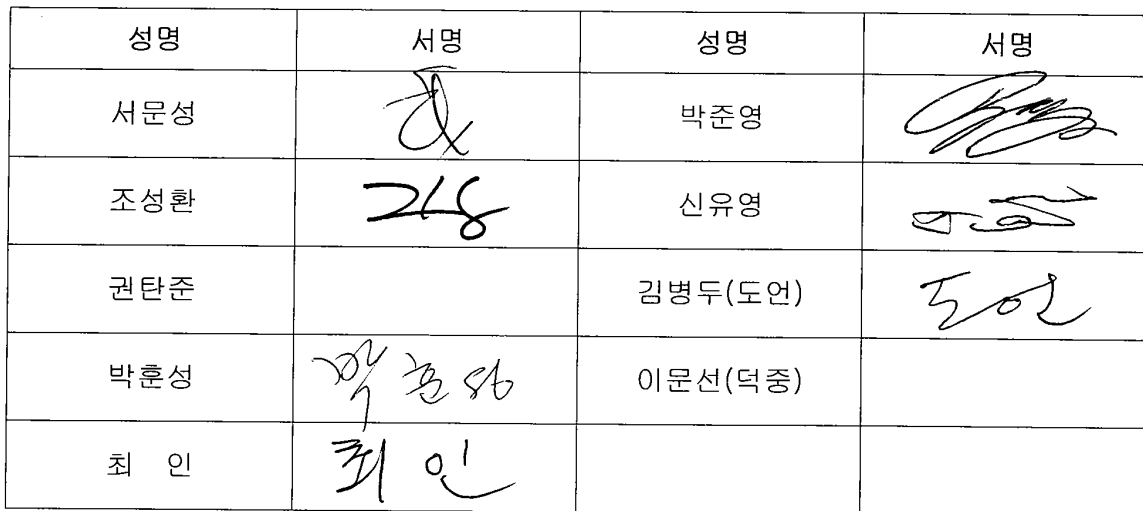 성명 서명 성명 서명
서문성 박준영
조성환 신유영
권탄준 김병두(도언) 도언
박훈성 박훈성 이문선(덕중)
최 인 최 인